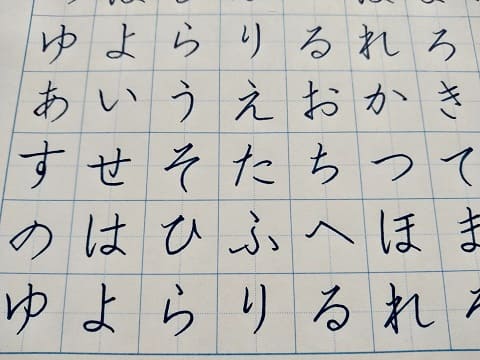 ゆよらりるれろ
あいうえおかき
すせそたちつて
のはひふへほま
ゆよらりるれ